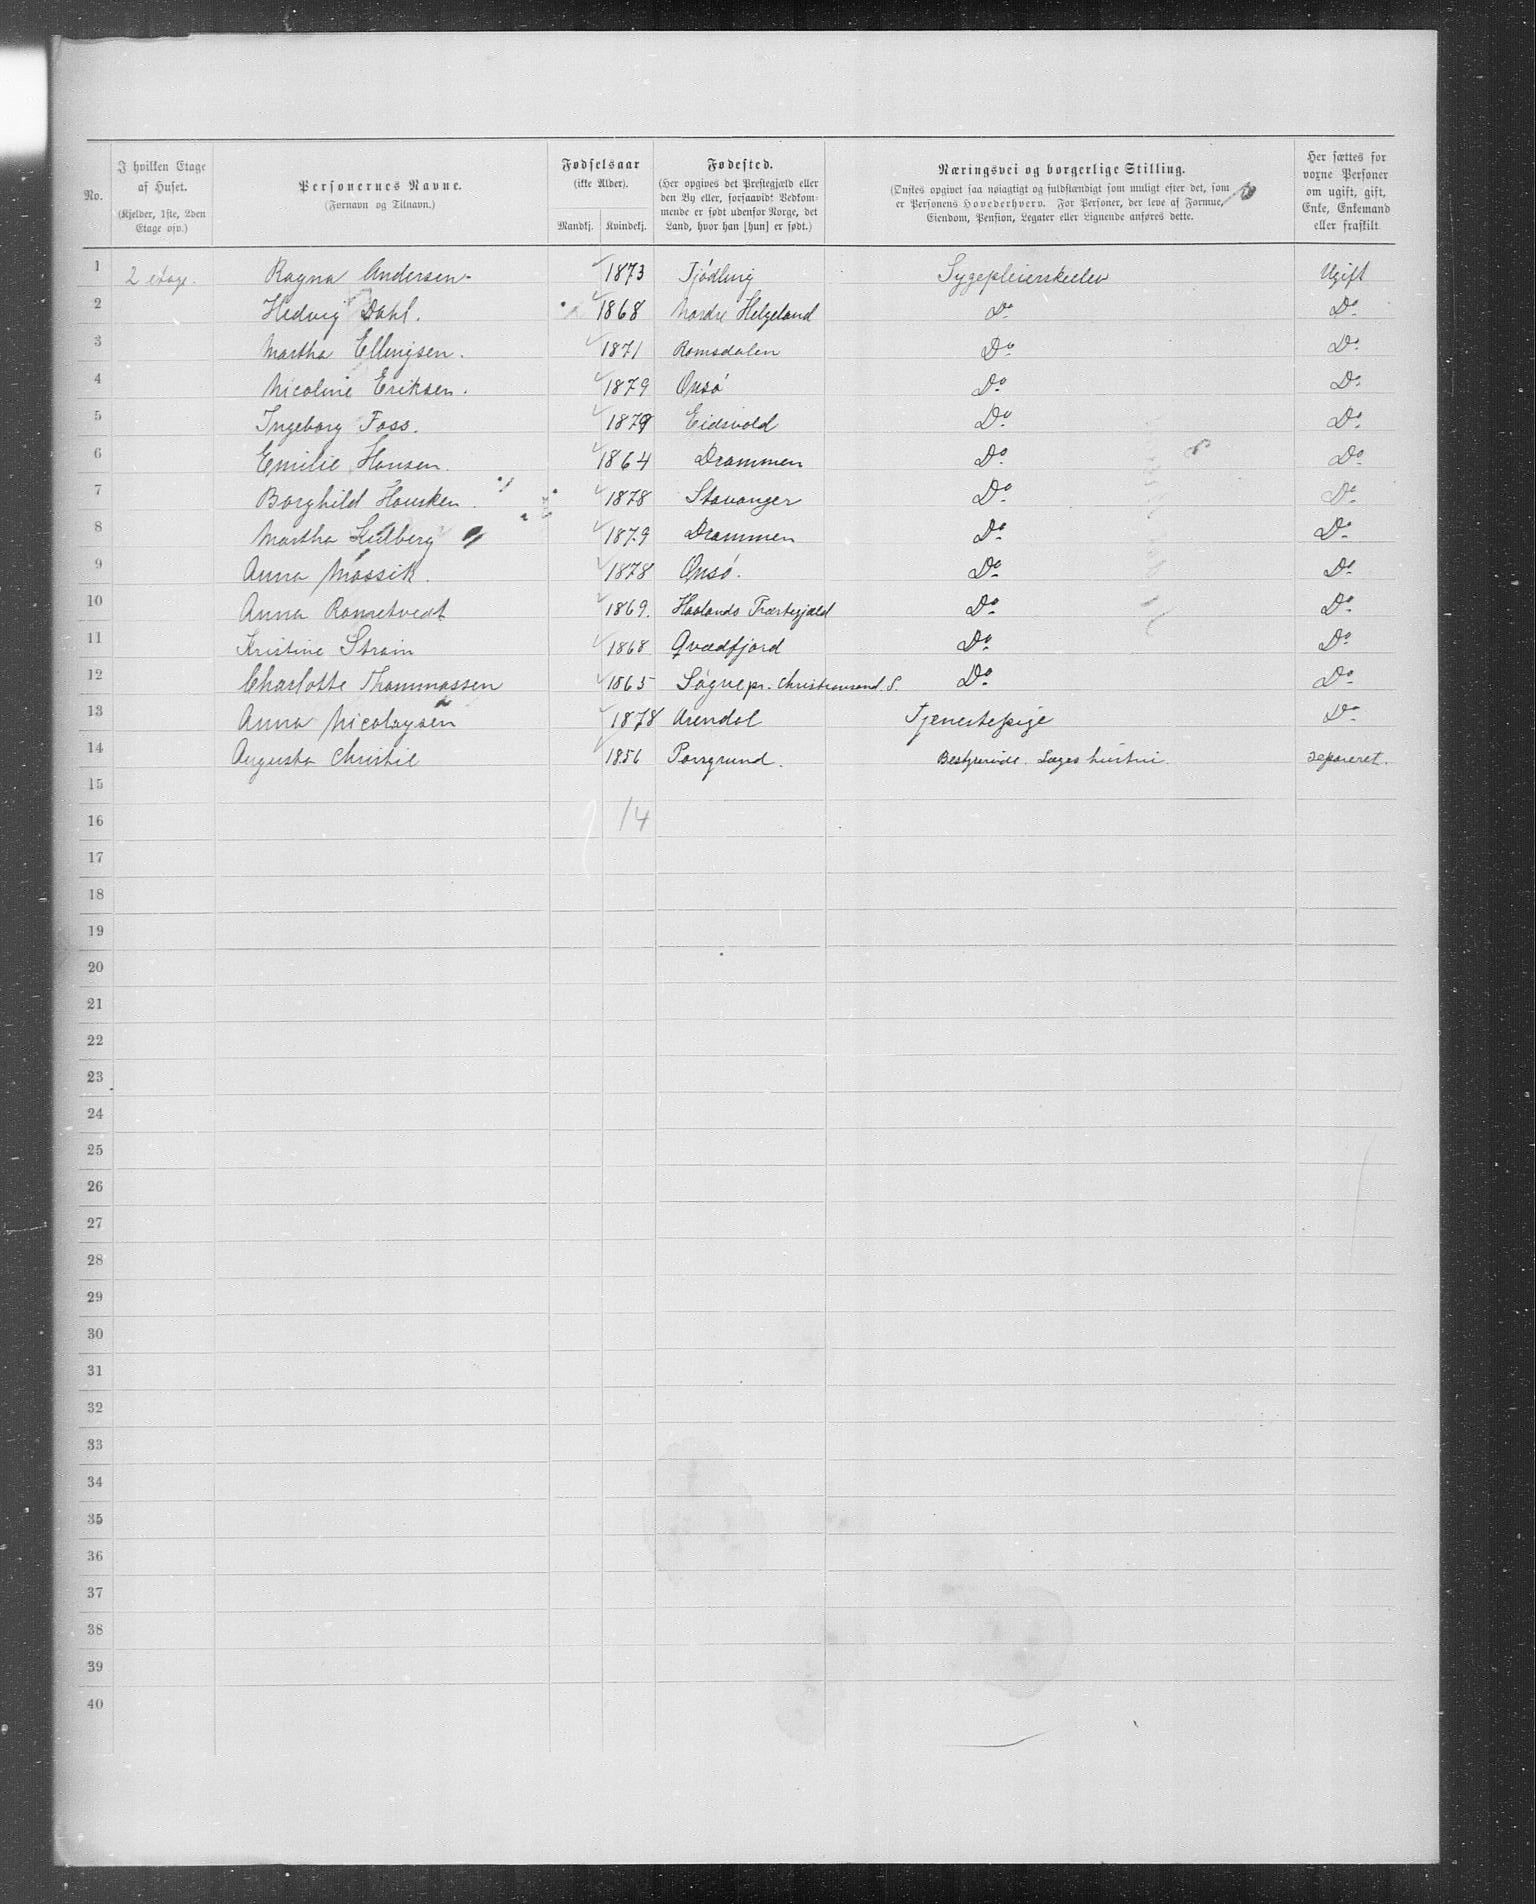 No. | I hvilken Etage af Huset. (Kjelder, 1ste, 2den Etage osv.) | Personernes Navne. (Fornavn og Tilnavn.) | Fødselsaar (ikke Alder). Mandkj. | Kvindekj. | Fødested. (Her opgives det Prestegjæld eller den By eller, forsaavidt Vedkommende er født udenfor Norge, det Land, hvor han [hun] er født.) | Næringsvei og borgerlige Stilling. (Ønskes opgivet saa nøiagtigt og fuldstændigt som muligt efter det, som er Personens Hovederhverv. For Personer, der leve af Formue, Eiendom, Pension, Legater eller Lignende anføres dette.) | Her sættes for voxne Personer om ugift, gift, Enke, Enkemand eller fraskilt
1 2 etage. Ragna Andersen 1873 Tjødling Sygepleierskeelev Ugift
2 Hedvig Dahl. 1868 Nordre Helgeland Do Do
3 Martha Ellingsen. 1871 Romsdalen Do Do
4 Nicoline Eriksen. 1879 Onsø Do Do
5 Ingeborg Foss. 1879 Eidsvold Do Do
6 Emilie Hansen. 1864 Drammen Do Do
7 Borghild Hausken. 1878 Stavanger Do Do
8 Martha Hulberg 1879 Drammen Do Do
9 Anna Mossik. 1878 Onsø. Do Do
10 Anna Ramstvedt 1869. Haalands Præstegjæld Do Do
11 Kristine Strøm 1868 Qvædfjord Do Do
12 Charlotte Thommassen 1865 Søgne pr. Christiansand. S. Do Do
13 Anna Nicolaysen 1878 Arendal Tjenestepige Do
14 Augusta Christie 1856 Porsgrund. Bestyrerinde. Læges hustru. separeret.
15
16 14
17
18
19
20
21
22
23
24
25
26
27
28
29
30
31
32
33
34
35
36
37
38
39
40